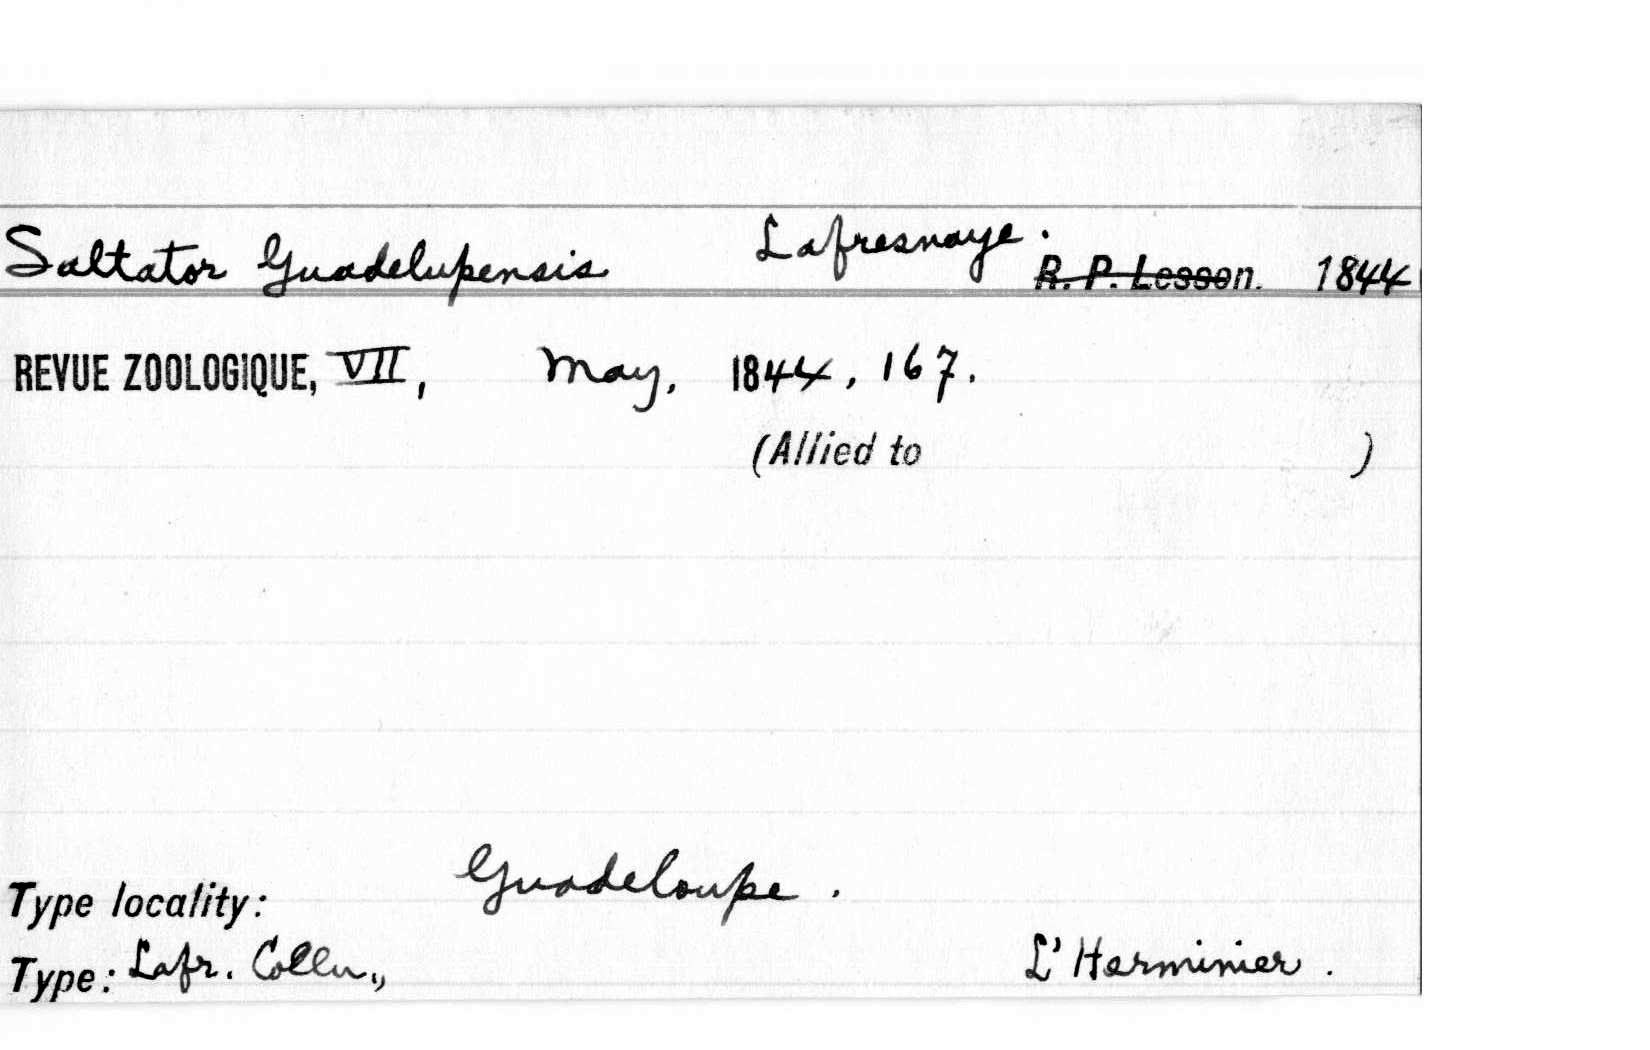 Saltator Guadelupensis Lafresnaye. R. P. Lesson. 1844
REVUE ZOOLOGIQUE, VII, May, 1844, 167.
(Allied to )
Type locality: Guadeloupe.
Type: Lafr. Colln., L'Herminier.